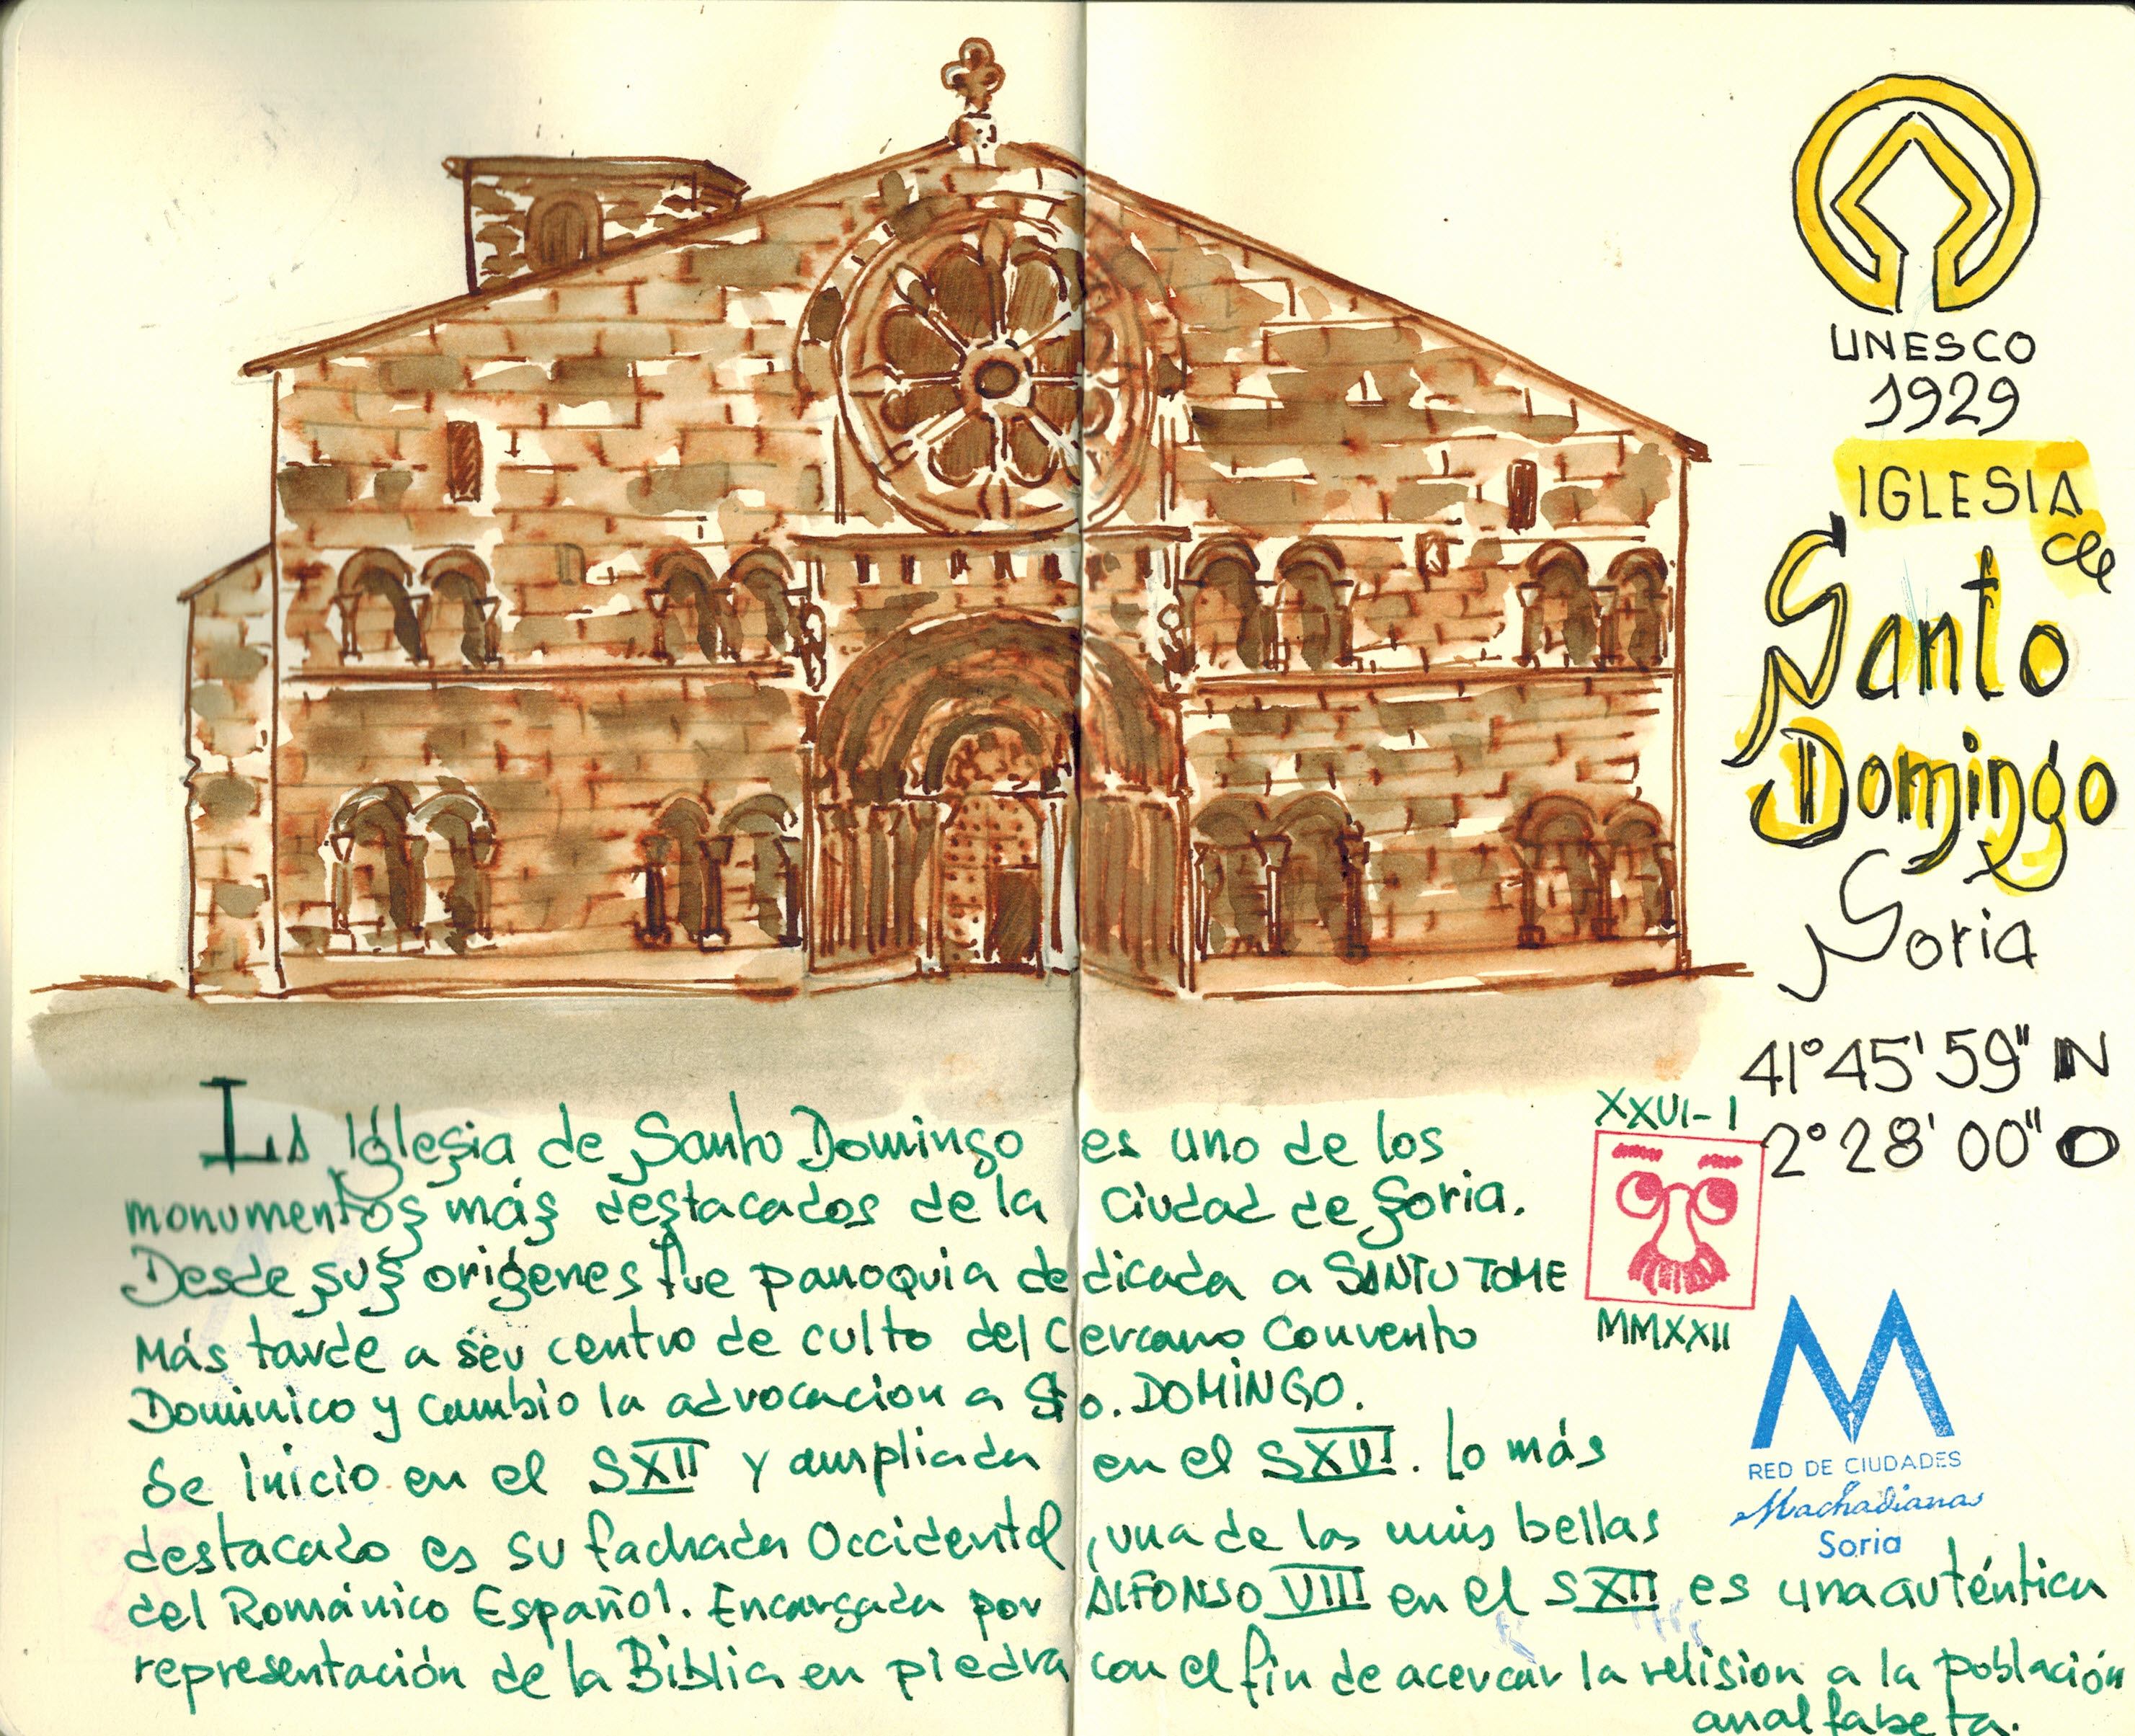 UNESCO
1929
IGLESIA
de
Santo
Domingo
Soria
41°45'59" N
2°28'00" O
La Iglesia de Santo Domingo es uno de los
monumentos más destacados de la Ciudad de Soria.
Desde sus origenes fue parroquia dedicada a SANTO TOME
Más tarde a ser centro de culto del Cercano Convento
Dominico y cambio la advocacion a Sto. DOMINGO.
Se inicio en el SXII y ampliada en el SXVI. Lo más
destacado es su fachada Occidental, una de las más bellas
del Románico Español. Encargada por ALFONSO VIII en el SXII es una auténtica
representación de la Biblia en piedra con el fin de acercar la religion a la población
analfabeta.
XXVI-I
MMXXII
M
RED DE CIUDADES
Machadianas
Soria